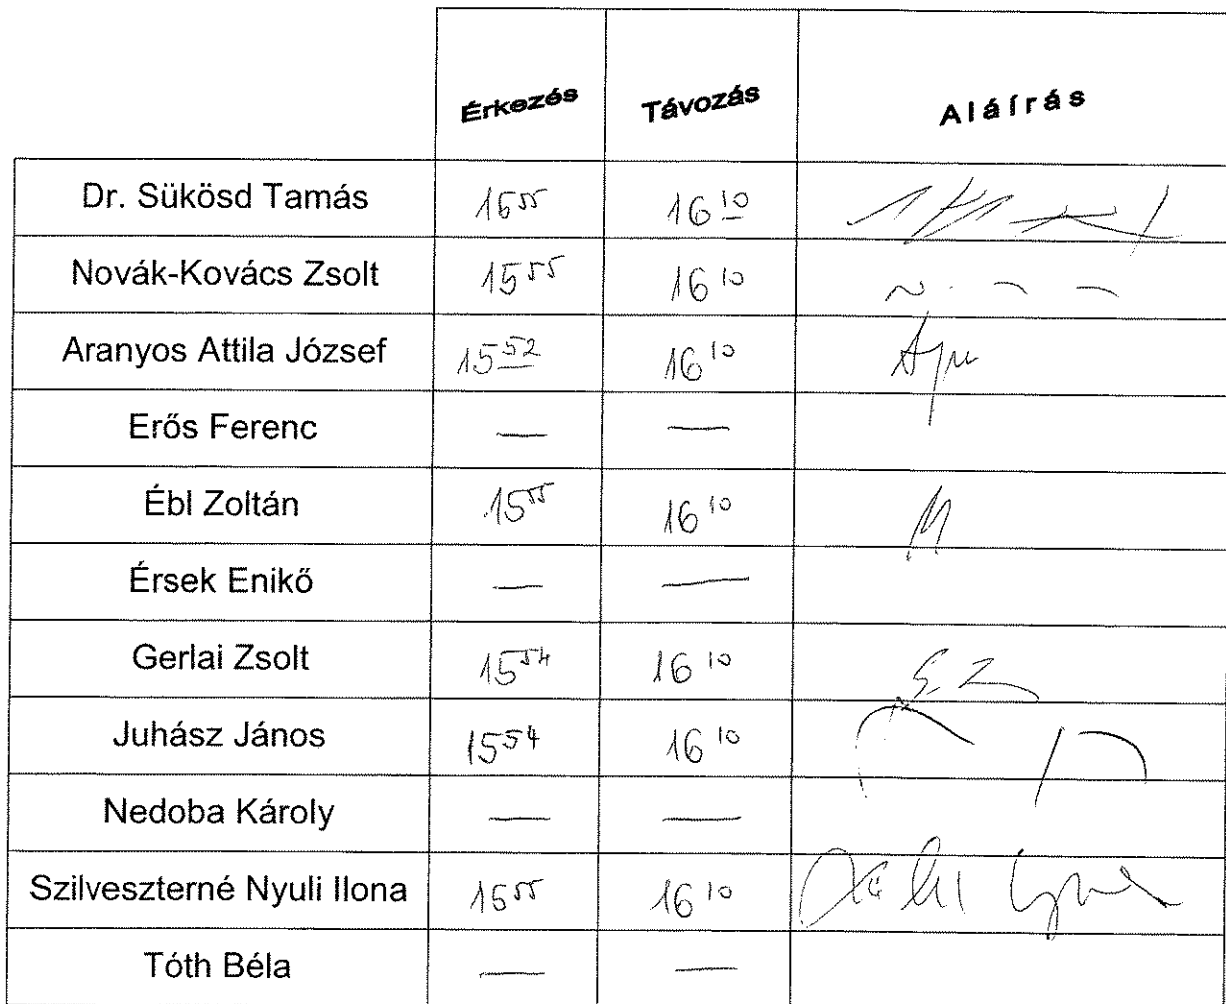 Érkezés Távozás Aláírás
Dr. Sükösd Tamás 15⁵⁵ 16¹⁰
Novák-Kovács Zsolt 15⁵⁵ 16¹⁰
Aranyos Attila József 15⁵² 16¹⁰
Erős Ferenc — —
Ébl Zoltán 15⁵⁵ 16¹⁰
Érsek Enikő — —
Gerlai Zsolt 15⁵⁴ 16¹⁰
Juhász János 15⁵⁴ 16¹⁰
Nedoba Károly — —
Szilveszterné Nyuli Ilona 15⁵⁵ 16¹⁰
Tóth Béla — —